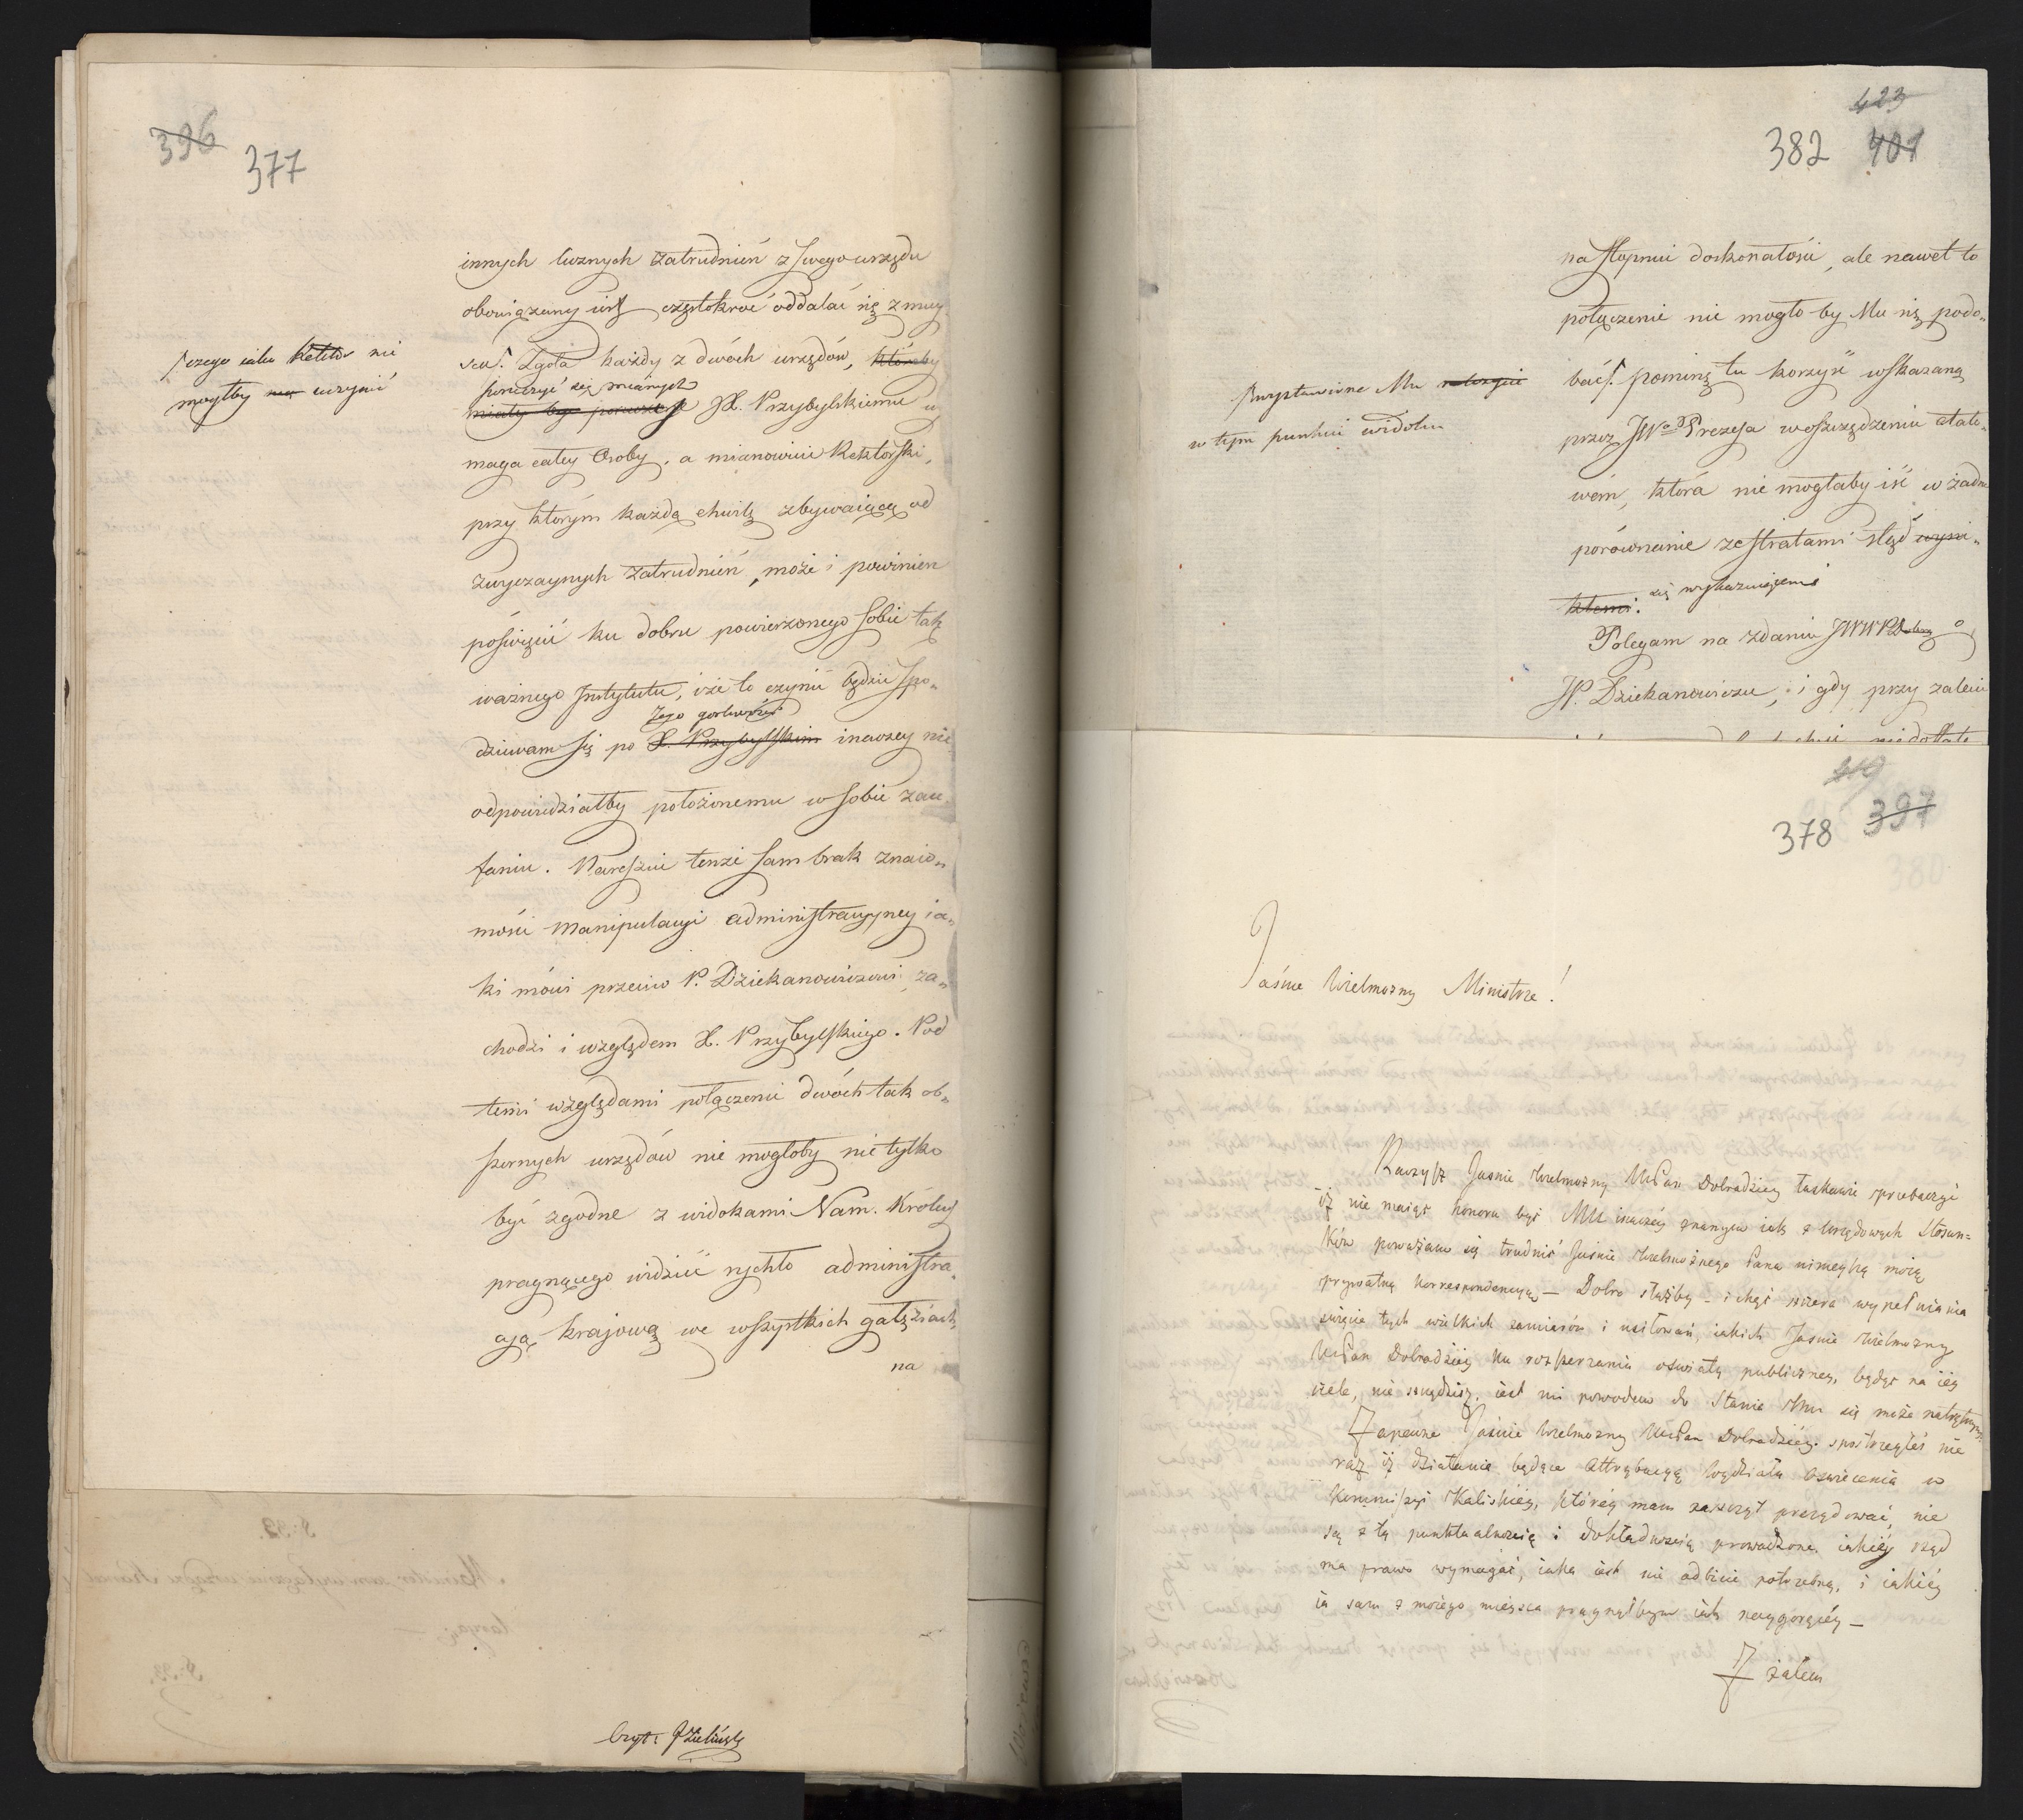 396
377
innych licznych zatrudnień z swego urzędu
obowiązany iest częstokroć oddalać się z miey
/czego iako Rektor nie
mogłby uczynić
sca/. Zgoła każdy z dwóch urzędów, któreby
poruczyć się mianych
miały być poruczone X. Przybylskiemu wy
maga całey Osoby, a mianowicie Rektorski,
przy którym każdą chwilę zbywaiącą od
zwyczaynych zatrudnień, może i powinien
poświęcić ku dobru powierzonego sobie tak
ważnego Instytutu, iże to czynić będzie spo„
Jego gorliwości
dziewam się po X. Przybylskim inaczey nie
odpowiedziałby położonemu w sobie zau„
faniu. Nareszcie tenże sam brak znaio„
mości manipulacyi administracyyney ia„
ki mówi przeciw P. Dziekanowiczowi, za„
chodzi i względem X. Przybylskiego. Pod
temi względami połączenie dwóch tak ob„
szernych urzędów nie mogłoby nie tylko
być zgodne z widokami Nam. Królew
pragnącego widzieć rychło administra„
cyą krajową we wszystkich gałęziach
na
Czyt: Zieliński
423
382 401
na stopniu doskonałości, ale nawet to
połączenie nie mogło by Mu się podo„
/wystawione Mu
w tym punkcie widoku
bać/. pominę tu korzyść wskazaną
przez JWo Prezesa w oszczędzeniu etato„
wém, która nie mogłaby iść w żadne
porównanie ze stratami stąd wyni„
kłemi. się wykazuiącemi
Polegam na zdaniu JWW
JP. Dziekanowiczu, i gdy przy zalecie
419
378 397
380
Jaśnie Wielmożny Ministrze!
Raczysz Jaśnie Wielmożny MćPan Dobrodziey łaskawie przebaczyć
iż nie maiąc honoru być Mu inaczéy znanym iak z Urzędowych Stosun=
ków poważam się trudnić Jaśnie Wielmożnego Pana ninieyszą moią
prywatną korrespondencyą — Dobro służby — i chęć szczera wypełniania
święcie tych wielkich zamiarów i usiłowań, iakich Jaśnie Wielmożny
MćPan Dobrodziey ku rozszerzaniu oświaty publiczney, będąc na iéy
czele, nie szczędzisz, iest mi powodem do Stania Mu się może natrętnym.
Zapewne Jaśnie Wielmożny MćPan Dobrodziéy spostrzegłeś nie
raz iż działania będące Attrybucyą Wydziału Oświecenia w
Kommissyi Kaliskiéy, któréy mam zaszczyt prezydować, nie
są z tą punktualnością i dokładnością prowadzone iakiéy rząd
ma prawo wymagać, iaka iest nie odbicie potrzebną, i iakiéy
ia sam z moiego mieysca pragnąłbym iak naygoręcéy —
Z żalem